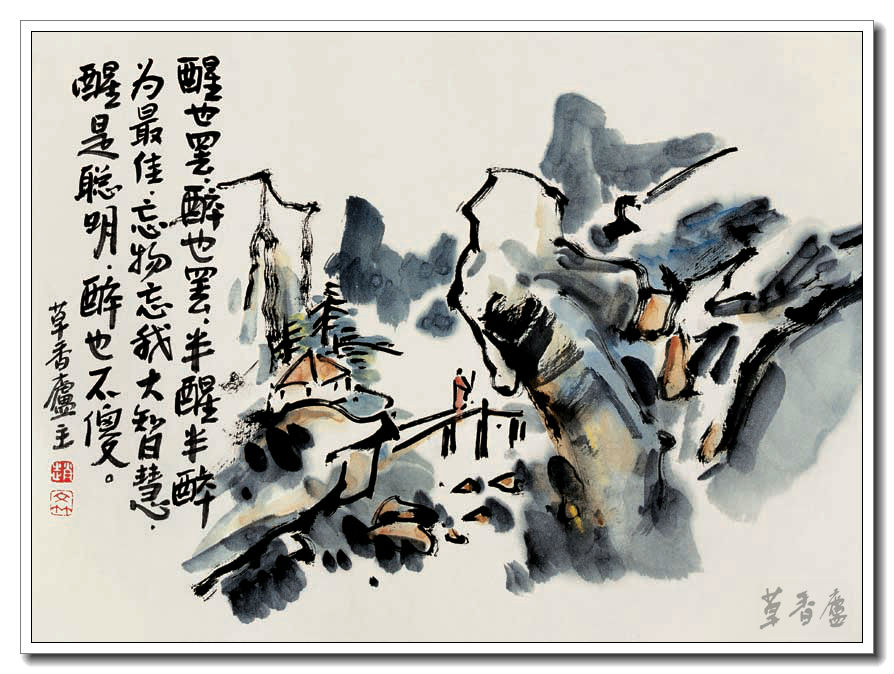 醒也罢、醉也罢、半醒半醉
为最佳、忘物忘我大智慧、
醒是聪明、醉也不傻。
草香廬主
趙
草香廬